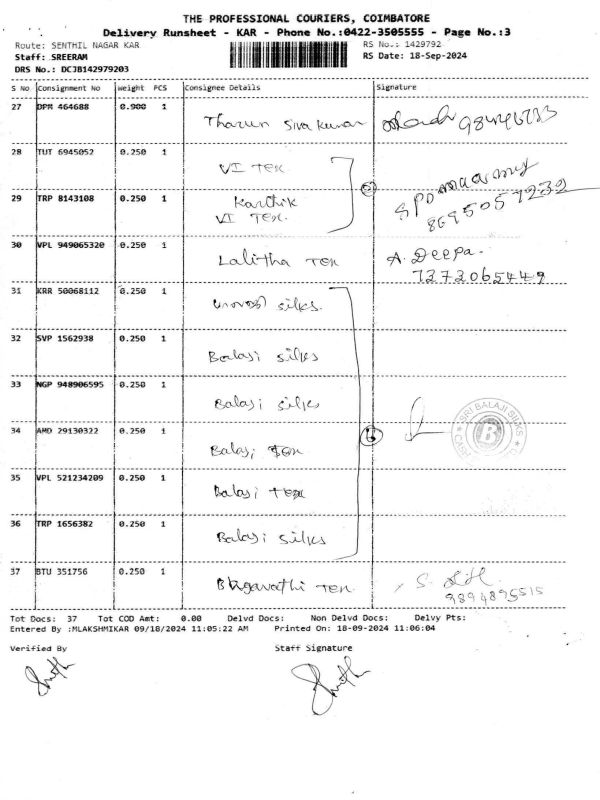 THE PROFESSIONAL COURIERS, COIMBATORE
Delivery Runsheet - KAR - Phone No.:0422-3505555 - Page No.:3
Route: SENTHIL NAGAR KAR
RS No.: 1429792
Staff: SREERAM
RS Date: 18-Sep-2024
DRS No.: DCJB142979203
S No Consignment No Weight PCS Consignee Details Signature
27 DPM 464688 0.900 1 Tharun Siva kumar
28 TUT 6945052 0.250 1 VI Tex
29 TRP 8143108 0.250 1 Karthik
VI Tex.
8695057232
30 VPL 949065320 0.250 1 Lalitha Tex A. Deepa.
7373065449
31 KRR 50068112 0.250 1 silks.
32 SVP 1562938 0.250 1 Balaji silks
33 NGP 948906595 0.250 1 Balaji silks
34 AMD 29130322 0.250 1 Balaji Tex
SRI BALAJI SILKS
B
35 VPL 521234209 0.250 1 Balaji tex
36 TRP 1656382 0.250 1 Balaji silks
37 BTU 351756 0.250 1 Bhgavathi Tex
9894895515
Tot Docs: 37 Tot COD Amt: 0.00 Delvd Docs: Non Delvd Docs: Delvy Pts:
Entered By :MLAKSHMIKAR 09/18/2024 11:05:22 AM Printed On: 18-09-2024 11:06:04
Verified By Staff Signature